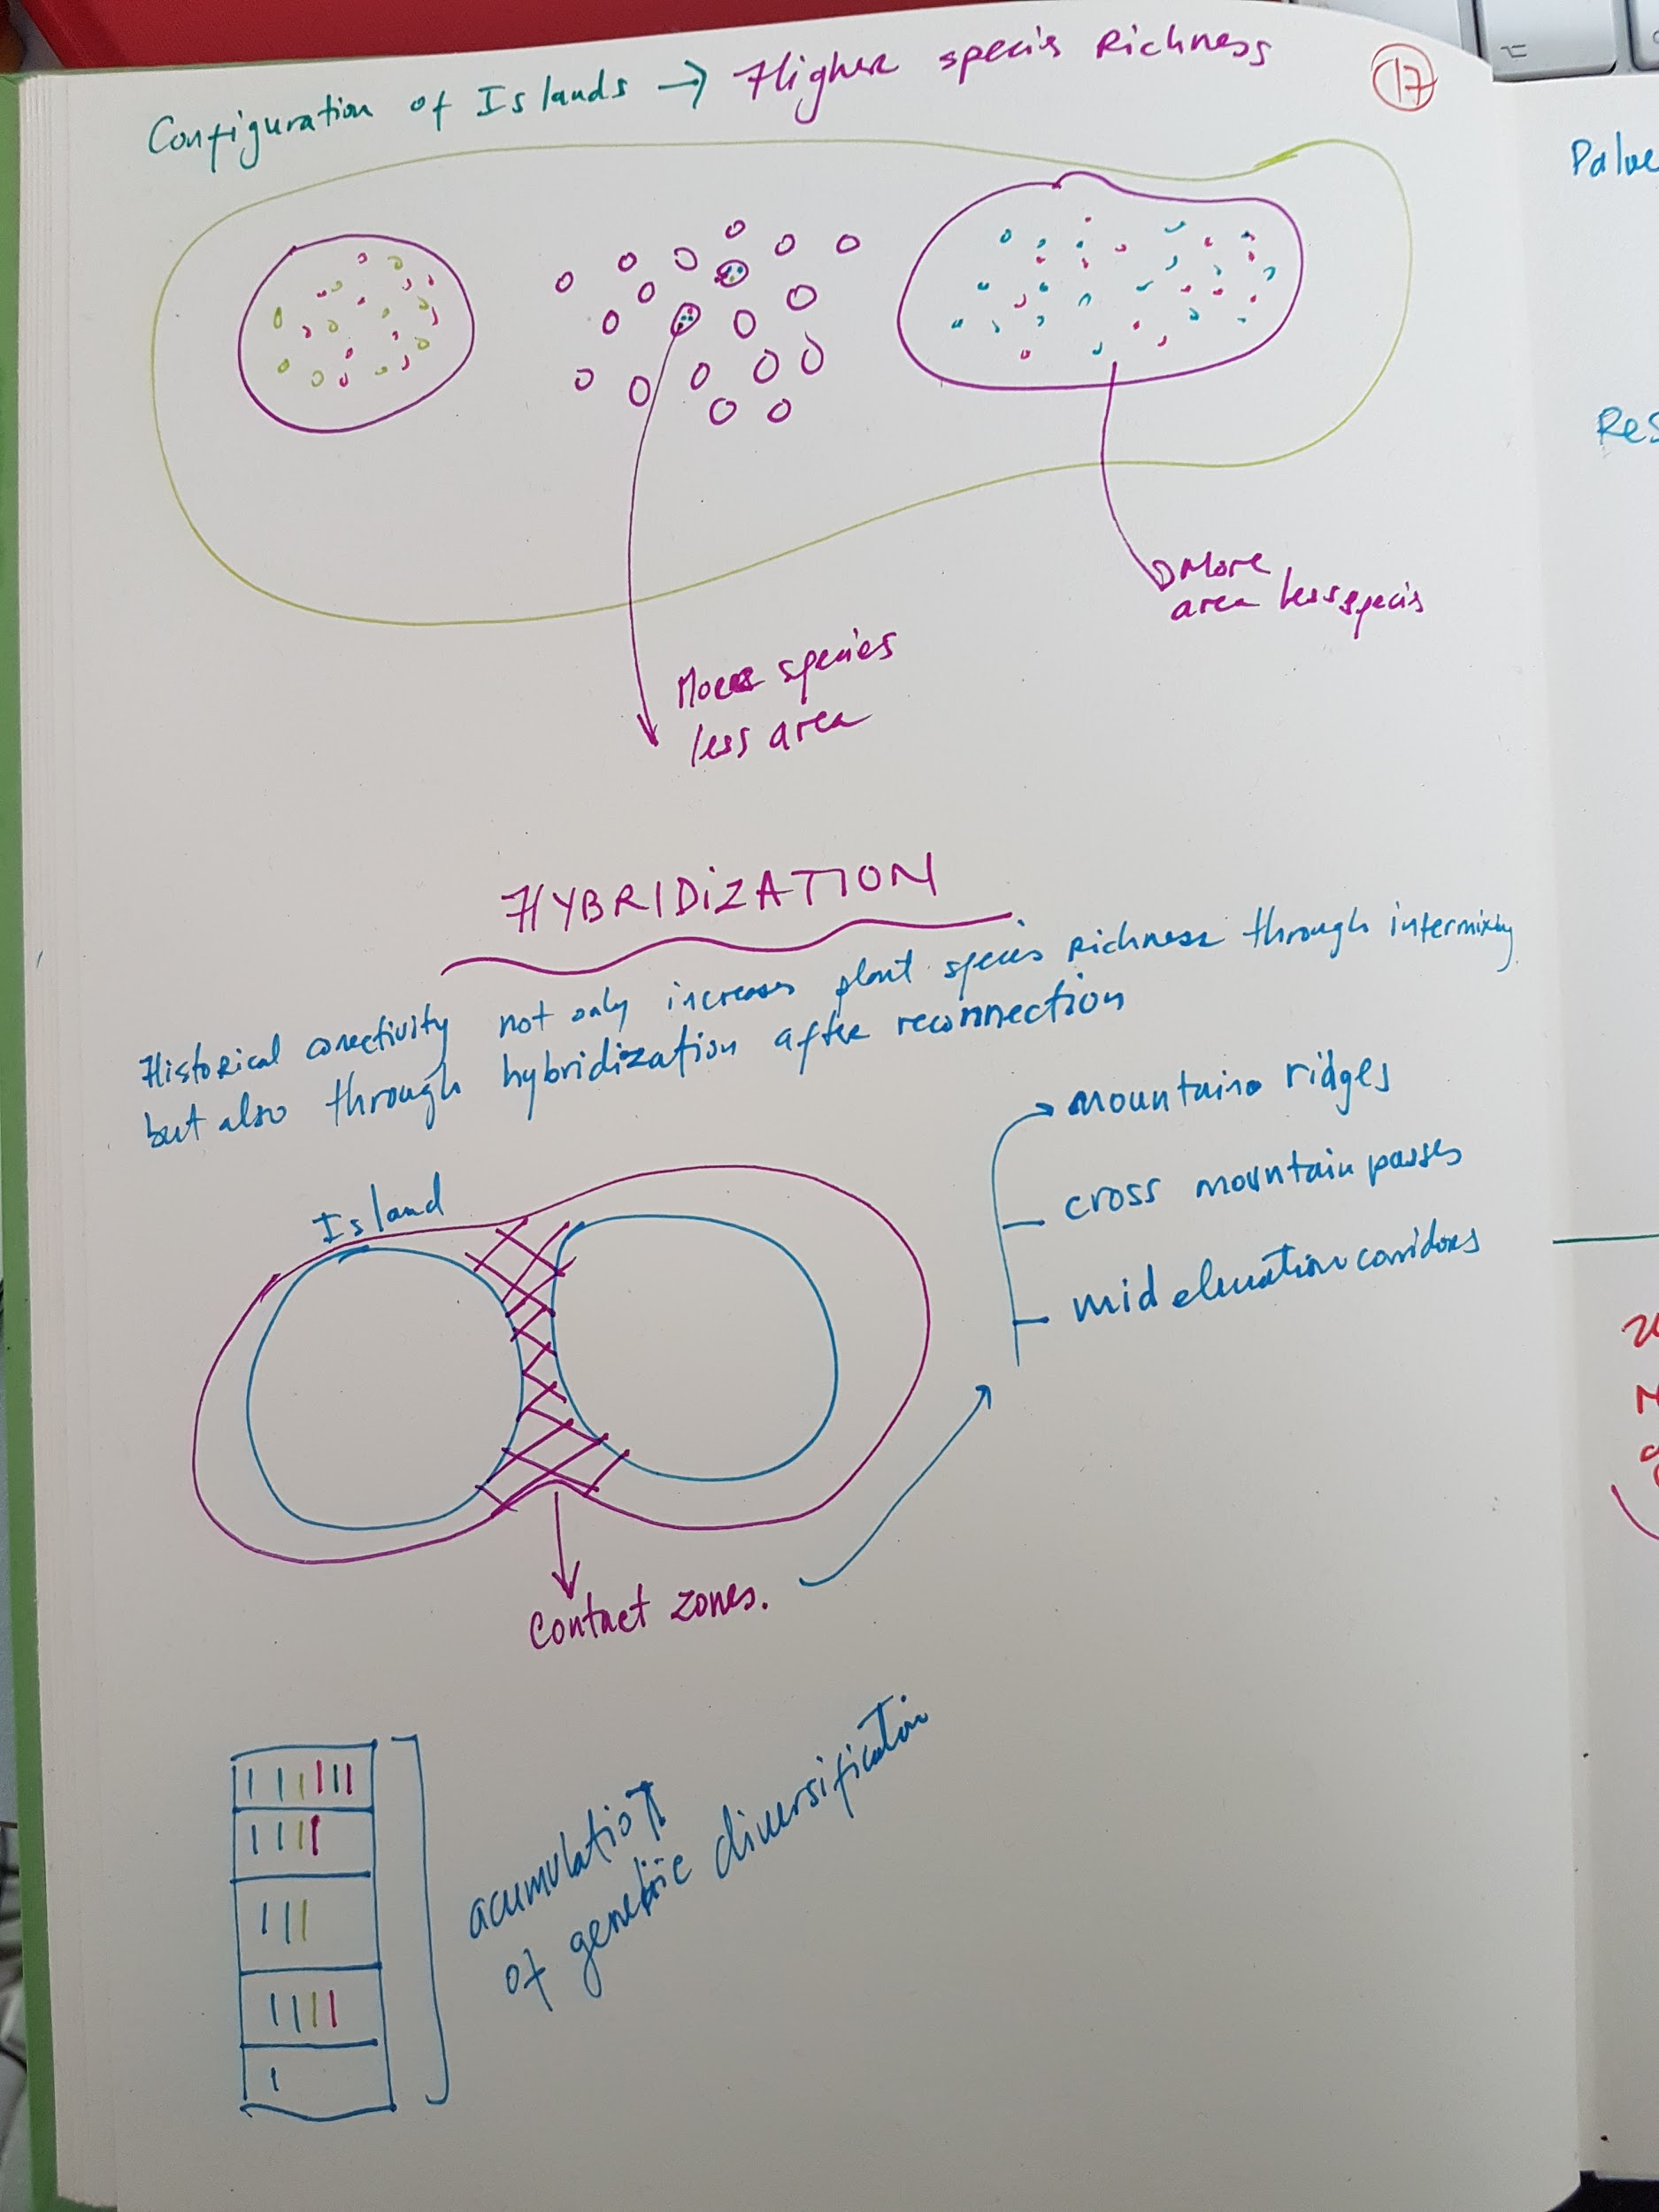 Configuration of Islands → Higher species Richness
17
More
area less specis
More species
less area
HYBRIDiZATION
Historical conectivity not only increases plant species Richness through intermixing
but also through hybridization after reconnection
Island
mountains ridges
cross mountain passes
mid elevation corridors
Contact zones.
acumulation
of genetic diversification
Palue
Res